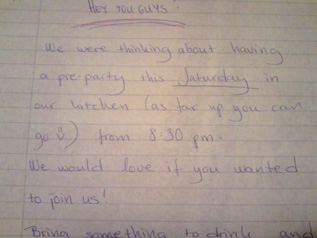 HEY YOU GUYS!
We were thinking about having
a pre-party this Saturday in
our kitchen (as far up you can
go ☺) from 8:30 pm.
We would love if you wanted
to join us!
Bring something to drink and